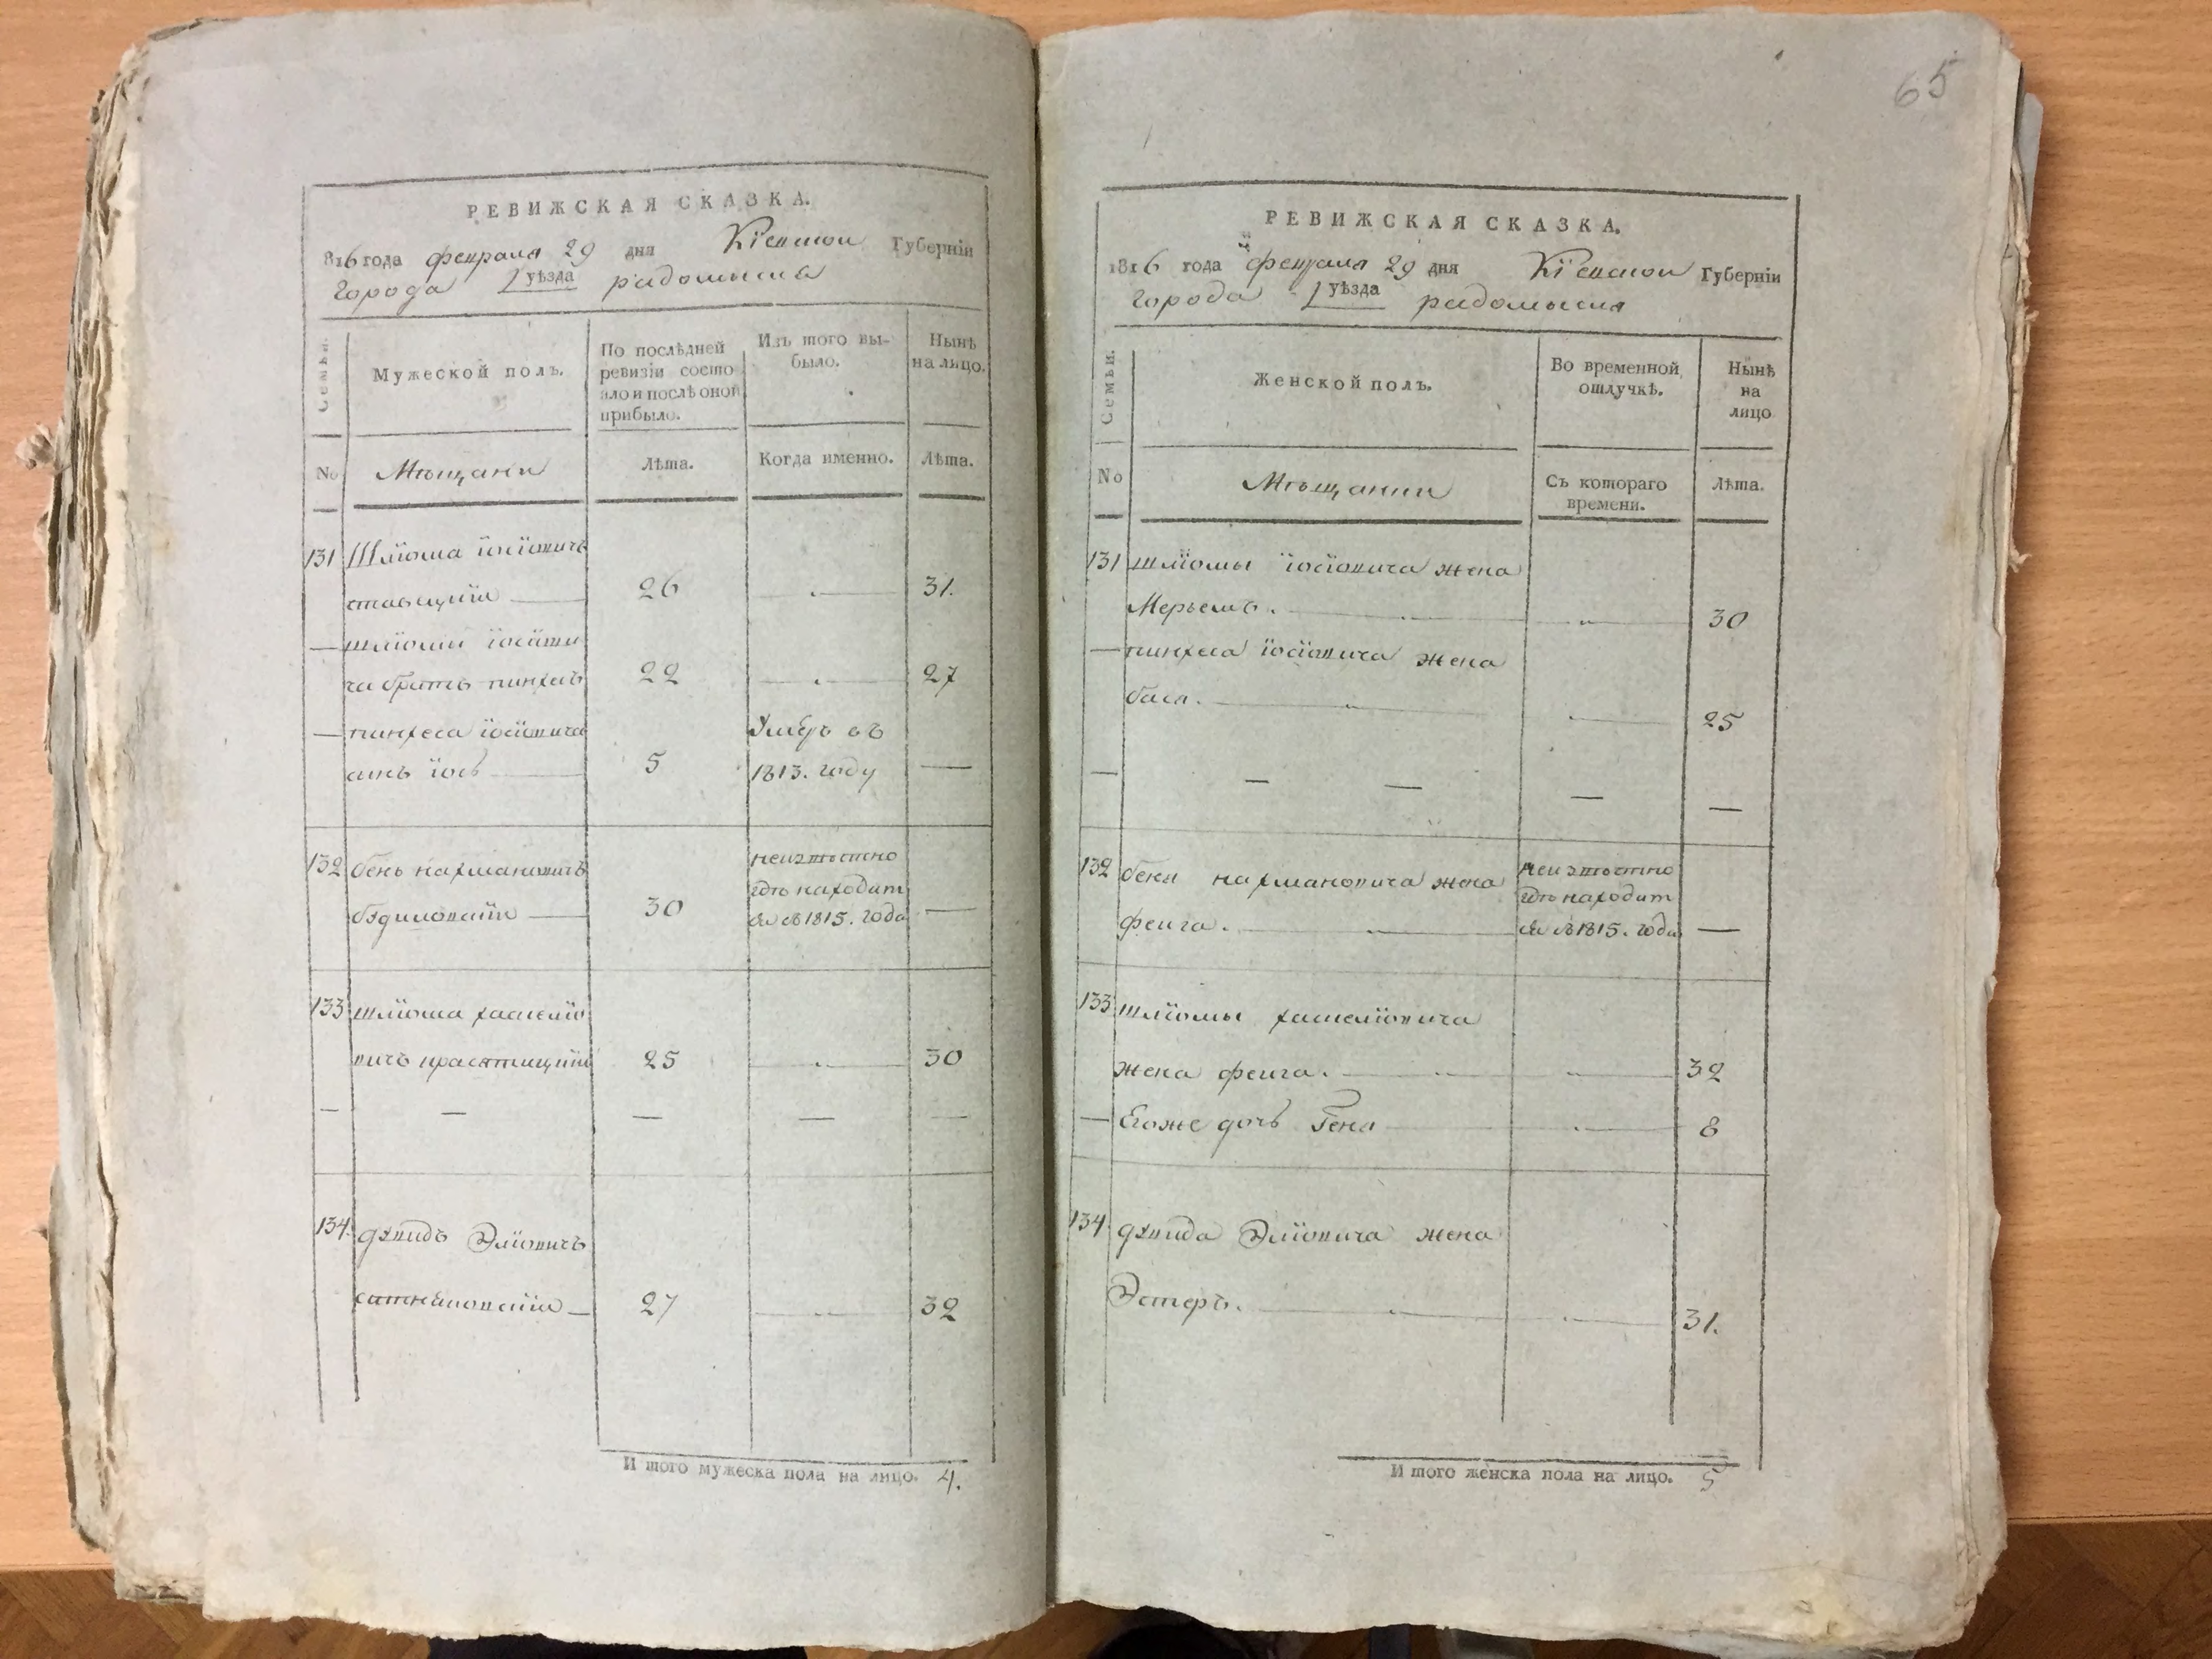 РЕВИЖСКАЯ СКАЗКА.
1816 года февраля 29 дня Кіевской Губерніи
города уѣзда радомысля
Семьи.
Мужеской полъ.
По послѣдней ревизіи состояло и послѣ оной прибыло.
Изъ того выбыло.
Нынѣ на лицо.
No
Мѣщани
Лѣта.
Когда именно.
Лѣта.
131 Шліома Іосіовичъ
26 31.
— шліоми іосіови
ча братъ пинхасъ 22 27
— пинхеса іосіовича Умеръ въ
синъ іось 5 1813. году —
132 бень нахмановичъ неизвѣстно
гдѣ находит
30 ся съ 1815. года —
133 шліома хаскеліо
вичъ 25 30
— — — — —
134. давидъ Эліовичъ
27 32
И того мужеска пола на лицо. 4.
65
РЕВИЖСКАЯ СКАЗКА.
1816 года февраля 29 дня Кіевской Губерніи
города уѣзда радомысля
Семьи.
Женской полъ.
Во временной отлучкѣ.
Нынѣ на лицо
No
Мѣщанки
Съ котораго времени.
Лѣта.
131 шліомы іосіовича жена
Мерьемъ. 30
— пинхеса іосіовича жена
бася. 25
— — — — —
132 беня нахмановича жена неизвѣстно
гдѣ находит
фейга. ся съ 1815. года —
133 шліомы хаскеліовича
жена фейга. 32
— Егоже дочь Гена 8
134 давида Эліовича жена
Эстеръ. 31.
И того женска пола на лицо. 5